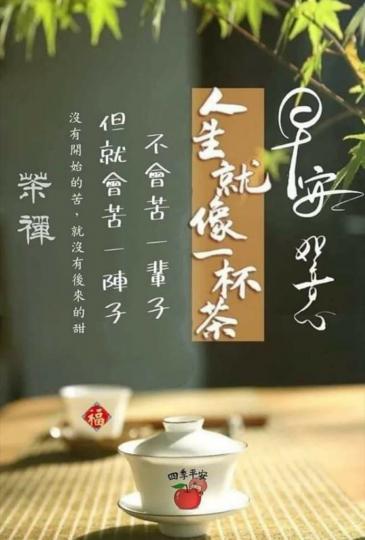 早安
如意
人生就像一杯茶
不會苦一輩子
但就會苦一陣子
沒有開始的苦，就沒有後來的甜
茶禪
福
四季平安